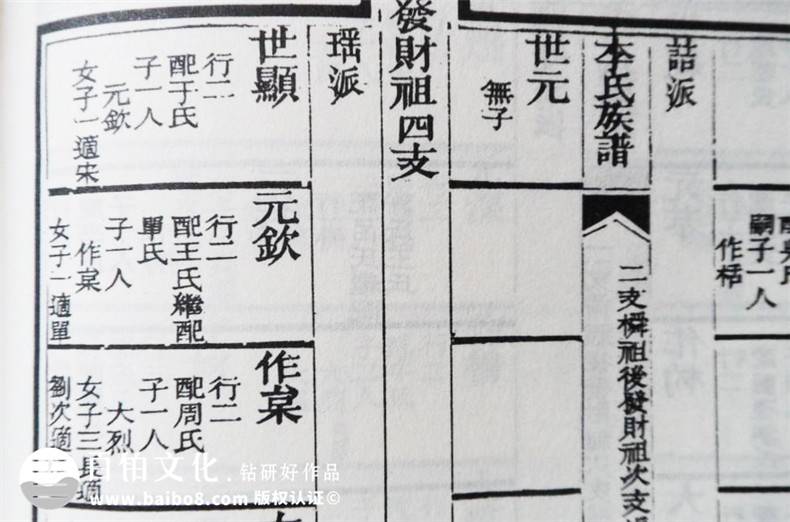 嗣子一人
作梧
喆派
李氏族譜
二支橓祖後發財祖次支
世元
無子
發財祖四支
瑶派
世顯
行二
配于氏
子一人
元欽
女子一適宋
元欽
行二
配王氏繼配
單氏
子一人
作杲
女子一適單
作杲
行二
配周氏
子一人
大烈
女子三長適
劉次適
钻研好作品
www.baibo8.com 版权认证©